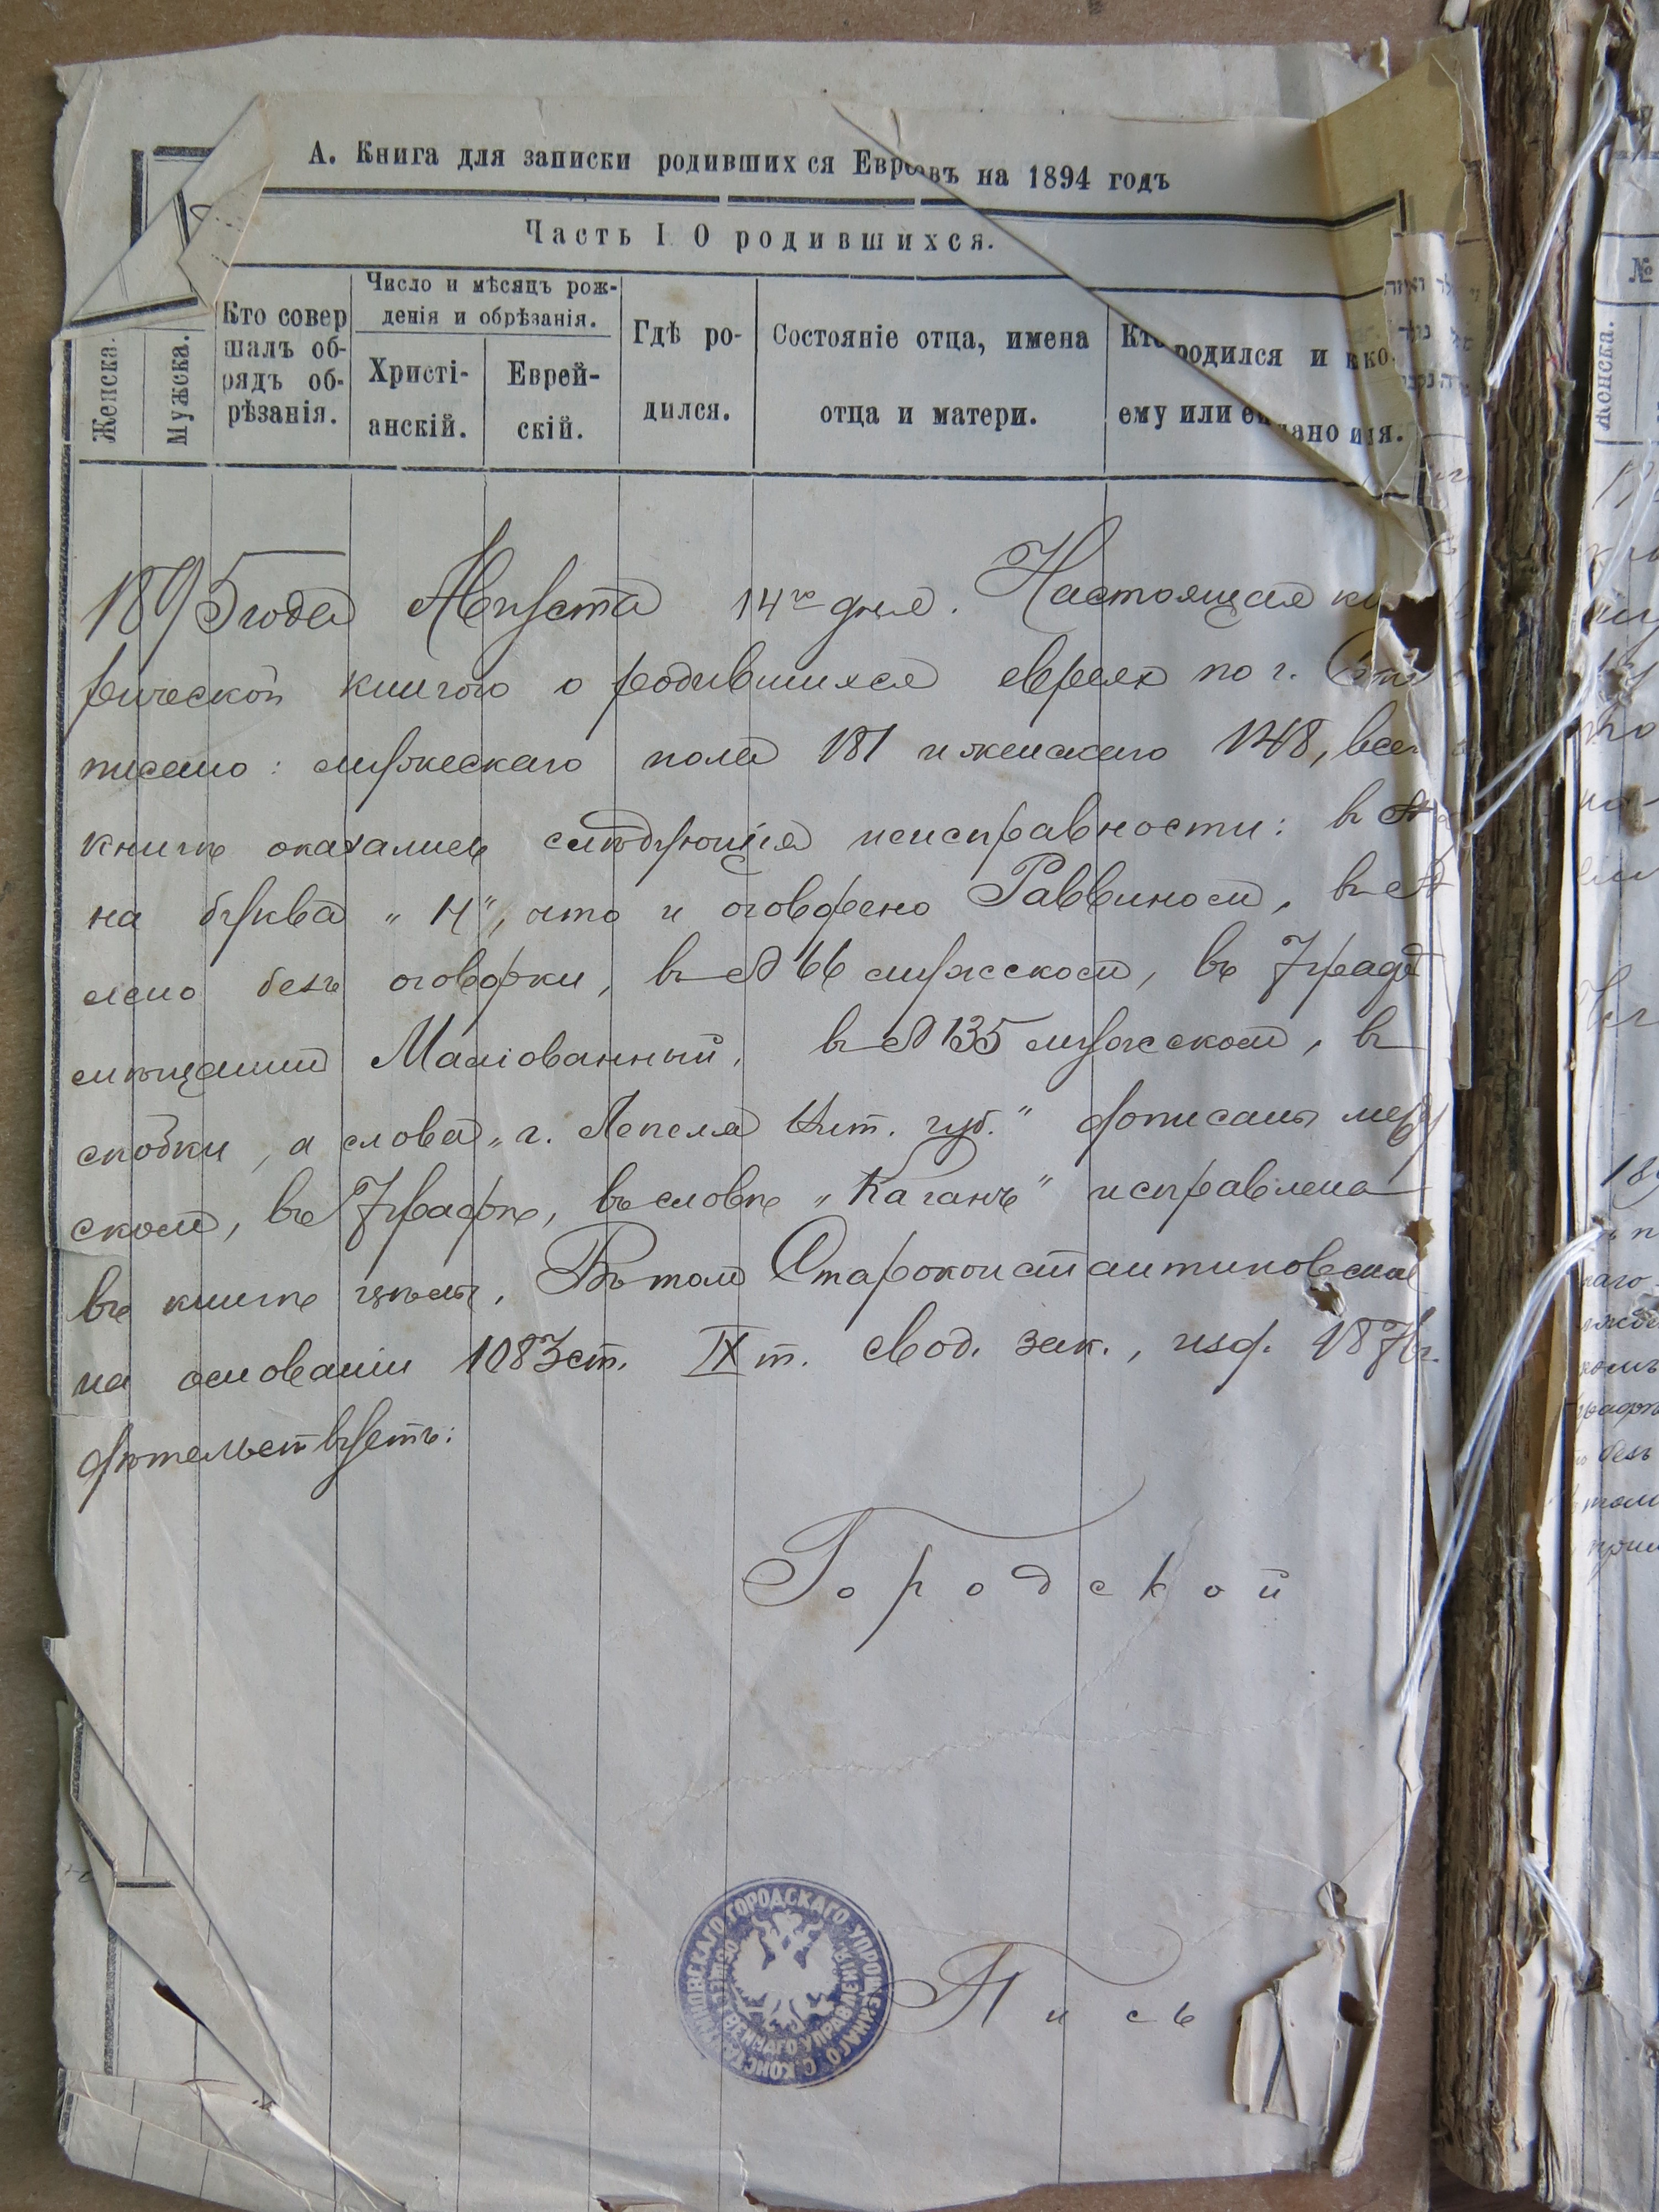 А. Книга для записки родившихся Евреевъ на 1894 годъ
Часть I О родившихся.
Женска.
Мужска.
Кто совер
шалъ об-
рядъ об-
рѣзанія.
Число и мѣсяцъ рож-
денія и обрѣзанія.
Христі-
анскій.
Еврей-
скій.
Гдѣ ро-
дился.
Состояніе отца, имена
отца и матери.
Кто родился и кко
ему или ей дано имя.
1895 года Августа 14го дня. Настоящая кн
рической книгою о родившихся евреях по г. Ста
писано: мужескаго пола 181 и женскаго 148, всег
книге оказались слѣдующія неисправности: въ №
на буква "Н", что и оговорено Раввином, въ №
лено безъ оговорки, въ № 66 мужском, въ 7 граф
мѣщанин Малiованный, въ № 135 мужском, в
скобки, а слова "г. Лепеля Вит. губ." дописаны меж
ском, въ 7 графѣ, въ словѣ "Каганъ" исправлена
въ книге цѣлы. Въ том Староконстантиновская
на основаніи 1083 ст. IX т. свод. зак., изд. 1876 г.
дѣтельствуетъ:
Городской
С.КОНСТАНТИНОВСКАГО ГОРОДСКАГО УПРОЩЕННАГО
ОБЩЕСТВЕННАГО УПРАВЛЕНІЯ
Пись
№